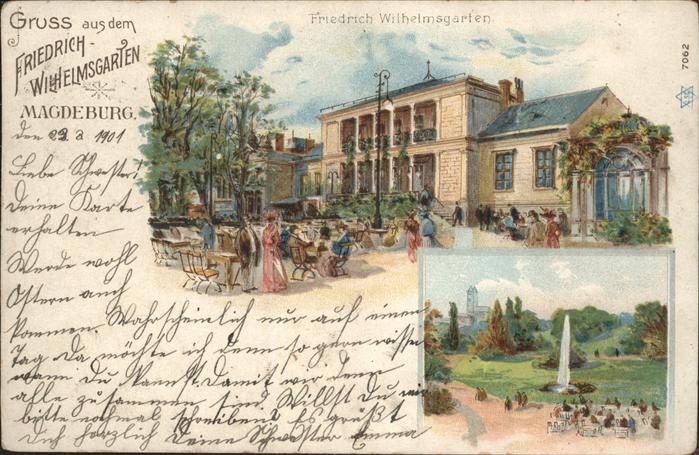 Gruss aus dem
FRIEDRICH-
WILHELMSGARTEN
MAGDEBURG.
Friedrich Wilhelmsgarten.
7062
den 23. 3 1901
Liebe Schwester!
Deine Karte
erhalten
Werde wohl
Ostern auch
kommen. Wahrscheinlich nur auf einen
Tag Da möchte ich denn so gern wissen
wann Du kannst. Damit wir denn
alle zusammen sind. Willst Du mir
bitte nochmal schreiben? Es grüßt
Dich herzlich Deine Schwester Emma